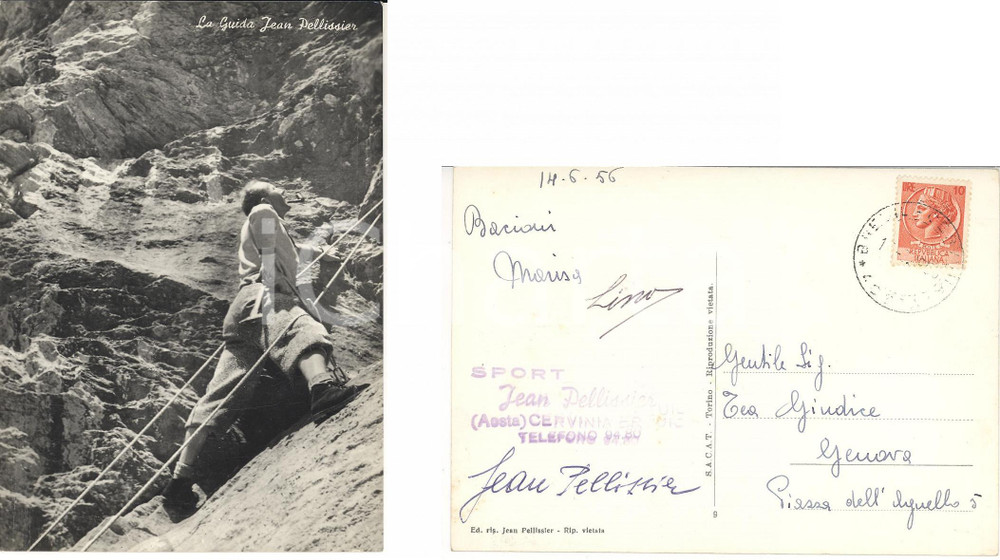 La Guida Jean Pellissier
14-6-56
Bacioni
Marisa
Lino
SPORT
Jean Pellissier
(Aosta) CERVINIA
TELEFONO
Jean Pellissier
Ed. ris. Jean Pellissier - Rip. vietata
S.A.C.A.T. - Torino - Riproduzione vietata.
9
LIRE 10
REPUBBLICA
ITALIANA
Gentile Sig.
Tea Giudice
Genova
Piazza dell' Agnello 5